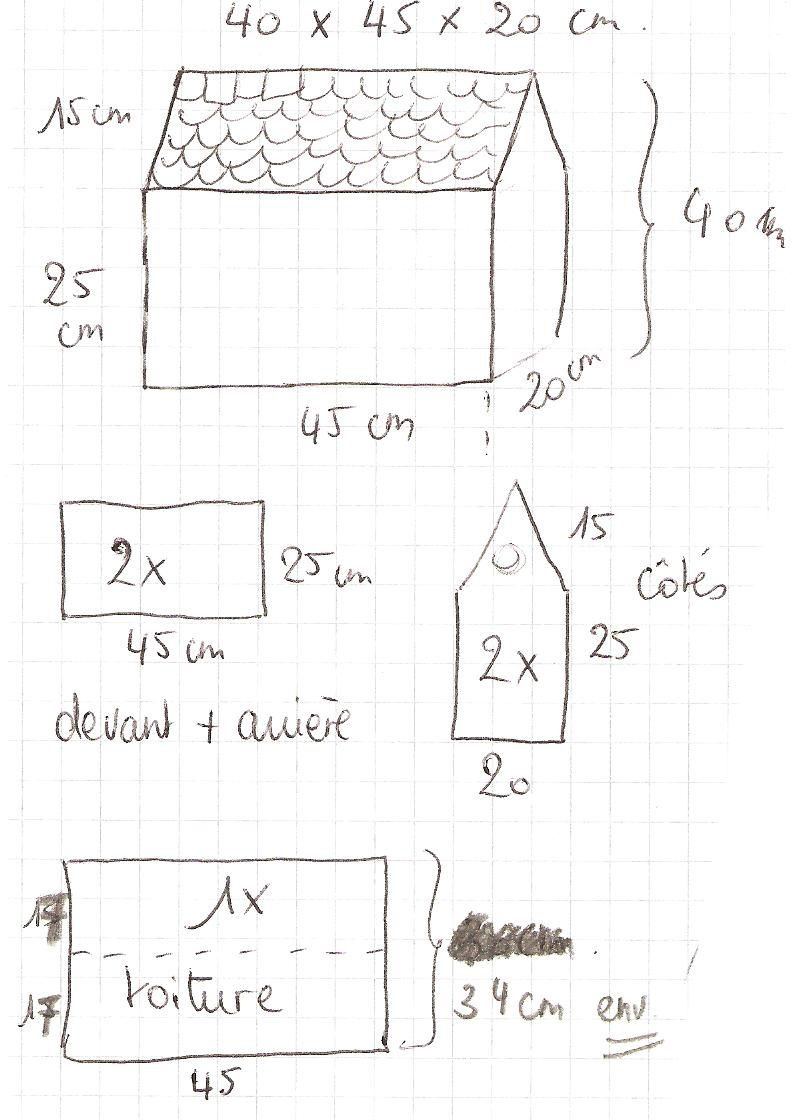 40 x 45 x 20 cm.
15 cm
40 cm
25
cm
20 cm
45 cm
15
2x
25 cm
côtés
2x
25
45 cm
devant + arrière
20
17
1x
17
toiture
34 cm env.
45